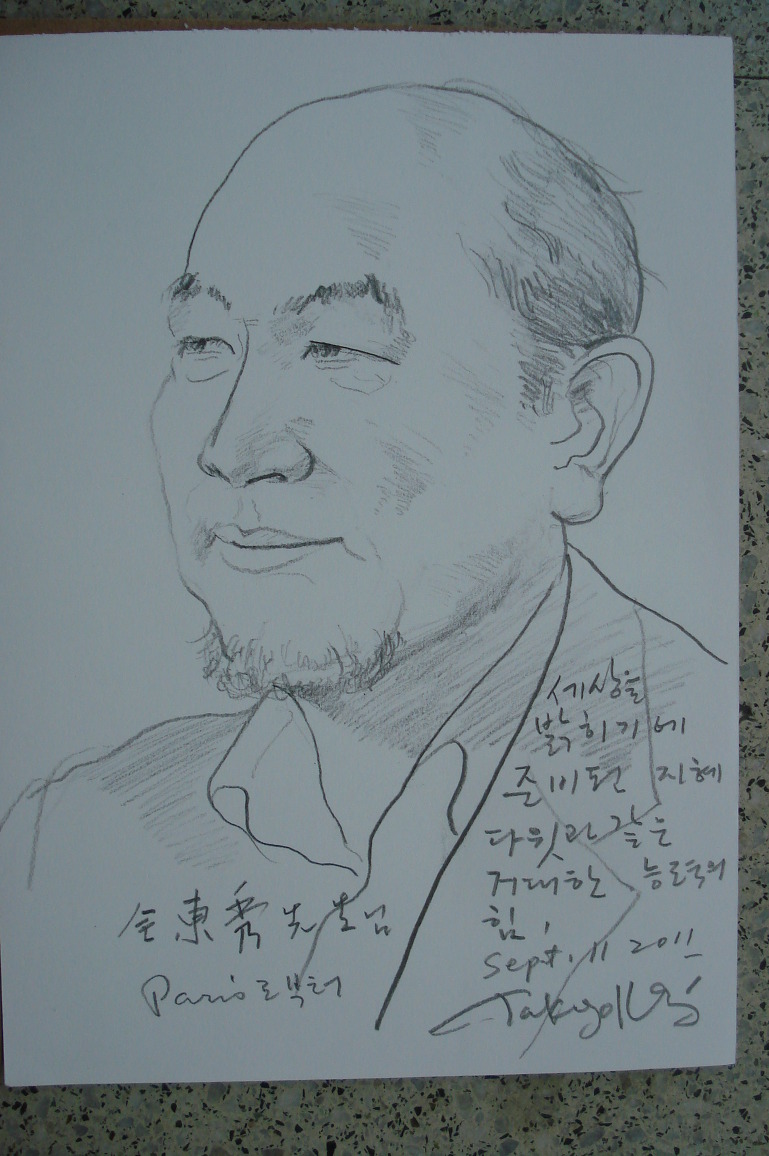 세상을
밝히기에
준비된 지혜
다윗과 같은
거대한 능력의
힘,
Sept. 11 2011
東秀先生님
Paris로부터